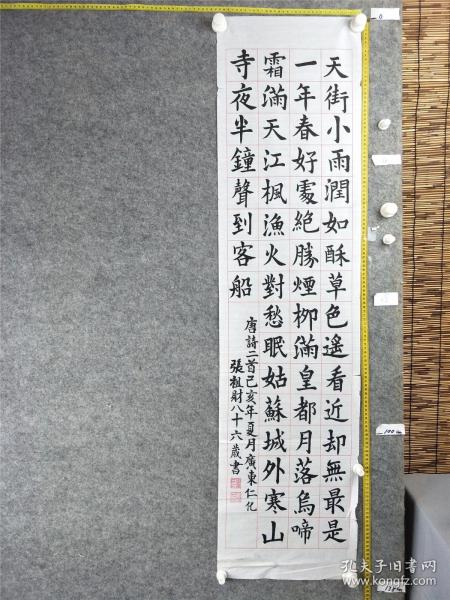 天街小雨潤如酥草色遥看近却無最是
一年春好處絶勝煙柳滿皇都月落烏啼
霜滿天江楓漁火對愁眠姑蘇城外寒山
寺夜半鐘聲到客船
唐詩二首己亥年夏月廣東仁化
張祖財八十六歲書
孔夫子旧书网
kongfz.com